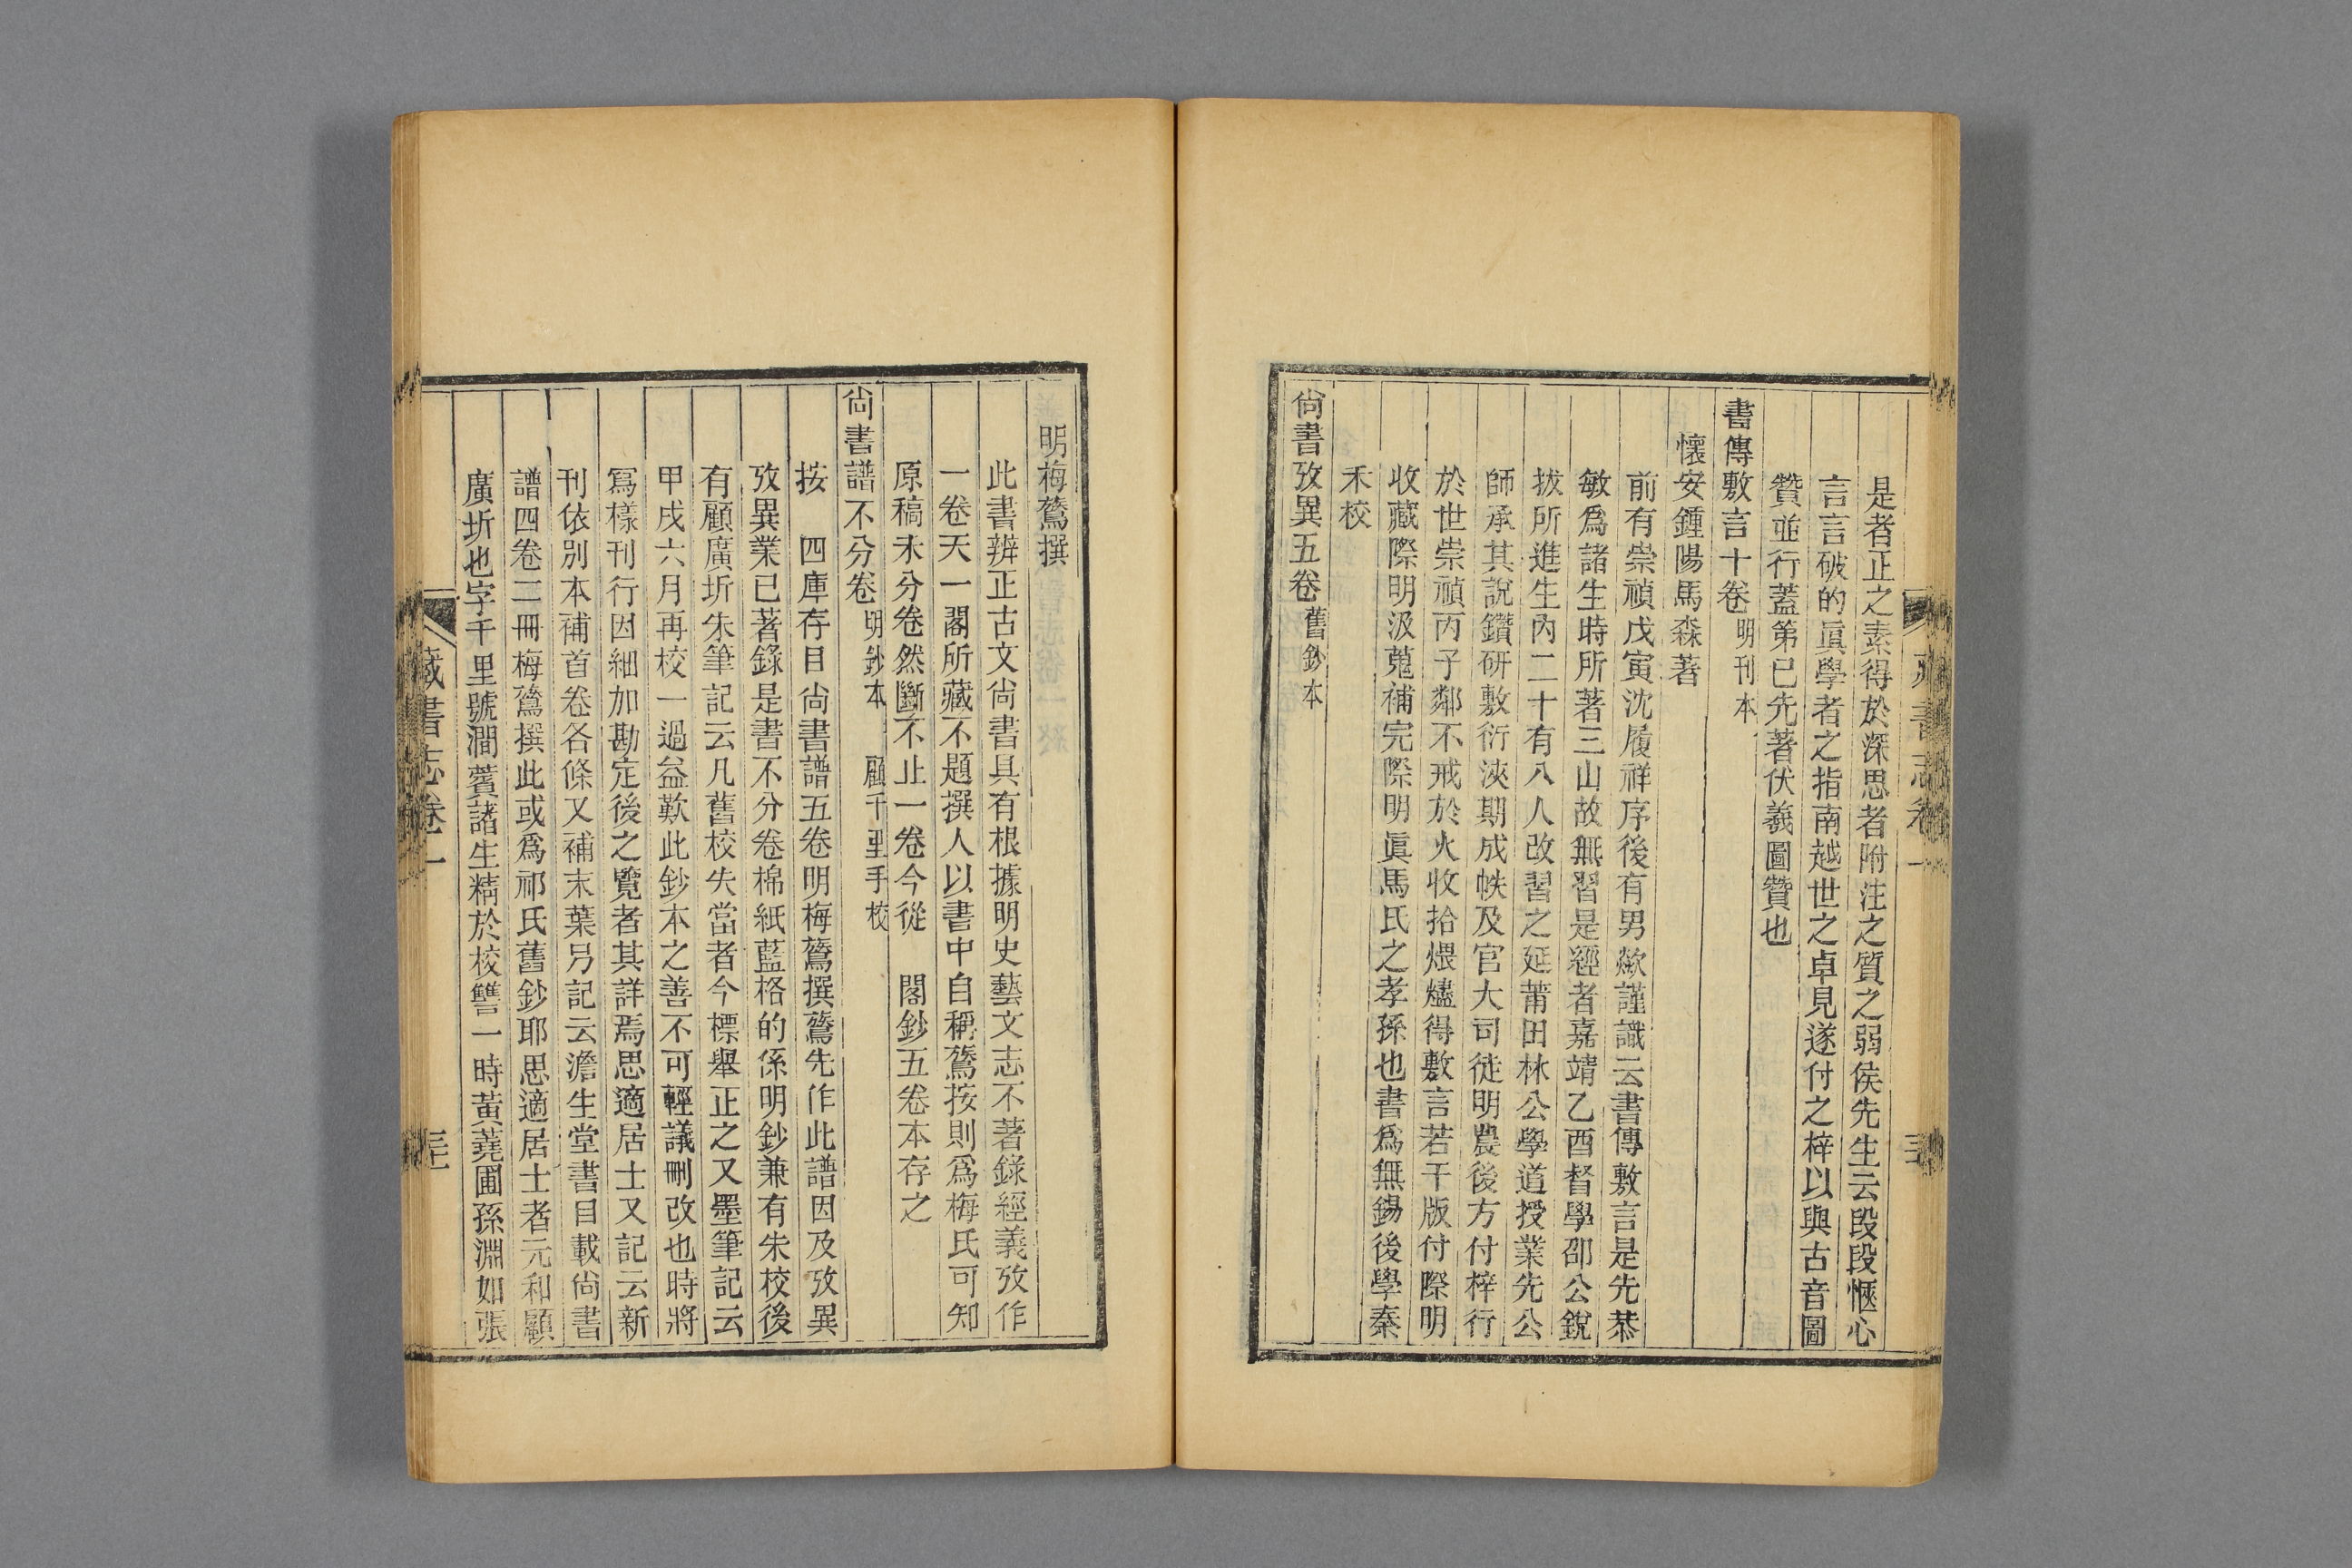 是者正之素得於深思者附注之質之弱侯先生云段段愜心
言言破的眞學者之指南越世之卓見遂付之梓以與古音圖
贊並行蓋第已先著伏羲圖贊也
書傳敷言十卷明刊本
懷安鍾陽馬森著
前有崇禎戊寅沈履祥序後有男歘謹識云書傳敷言是先恭
敏爲諸生時所著三山故無習是經者嘉靖乙酉督學邵公銳
拔所進生內二十有八人改習之延莆田林公學道授業先公
師承其說鑽研敷衍浹期成帙及官大司徒明農後方付梓行
於世崇禎丙子鄰不戒於火收拾煨燼得敷言若干版付際明
收藏際明汲蒐補完際明眞馬氏之孝孫也書爲無錫後學秦
禾校
尙書攷異五卷舊鈔本
明梅鷟撰
此書辨正古文尙書具有根據明史藝文志不著錄經義攷作
一卷天一閣所藏不題撰人以書中自稱鷟按則爲梅氏可知
原稿未分卷然斷不止一卷今從 閣鈔五卷本存之
尙書譜不分卷明鈔本 顧千里手校
按 四庫存目尙書譜五卷明梅鷟撰鷟先作此譜因及攷異
攷異業已著錄是書不分卷棉紙藍格的係明鈔兼有朱校後
有顧廣圻朱筆記云凡舊校失當者今標舉正之又墨筆記云
甲戌六月再校一過益歎此鈔本之善不可輕議刪改也時將
寫樣刊行因細加勘定後之覽者其詳焉思適居士又記云新
刊依別本補首卷各條又補末葉另記云澹生堂書目載尙書
譜四卷二冊梅鷟撰此或爲祁氏舊鈔耶思適居士者元和顧
廣圻也字千里號澗薲諸生精於校讐一時黃蕘圃孫淵如張
藏書志卷一